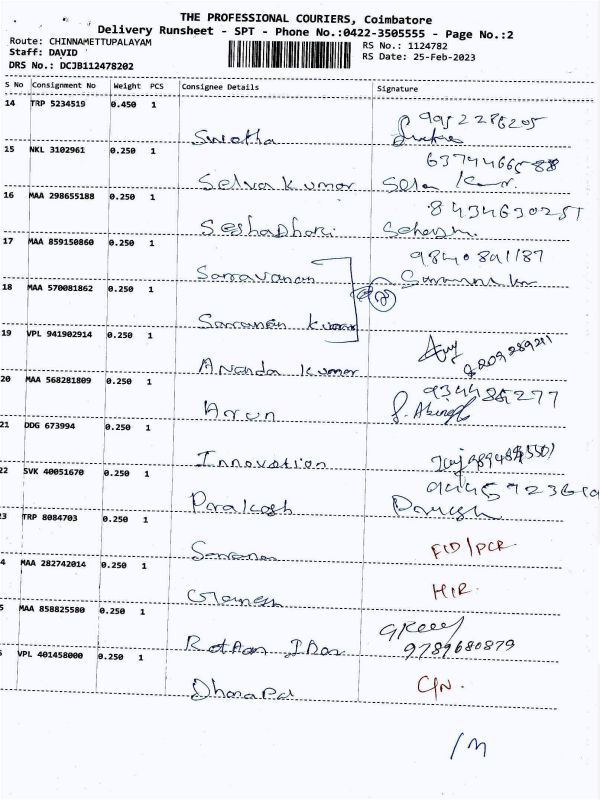 THE PROFESSIONAL COURIERS, Coimbatore
Delivery Runsheet - SPT - Phone No.:0422-3505555 - Page No.:2
Route: CHINNAMETTUPALAYAM
Staff: DAVID
DRS No.: DCJB112478202
RS No.: 1124782
RS Date: 25-Feb-2023
S No Consignment No Weight PCS Consignee Details Signature
14 TRP 5234519 0.450 1
9952286205
Swetha
15 NKL 3102961 0.250 1
6374466588
Selva Kumar
16 MAA 298655188 0.250 1
8434630251
Seshadhari
17 MAA 859150860 0.250 1
9840841187
Saravanan
18 MAA 570081862 0.250 1
Saravanan Kumar
19 VPL 941902914 0.250 1
8209289211
Ananda Kumar
20 MAA 568281809 0.250 1
934485277
Arun
21 DDG 673994 0.250 1
Innovation
22 SVK 40051670 0.250 1
Prakash
3 TRP 8084703 0.250 1
Saravanan
FID/PCR
4 MAA 282742014 0.250 1
HIR.
5 MAA 858825580 0.250 1
9789680879
VPL 401458000 0.250 1
C/N.
Dhanapal
/M